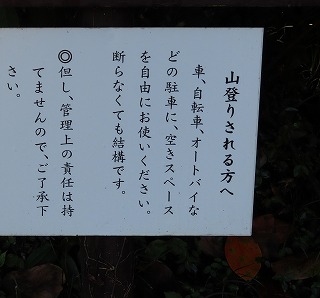 山登りされる方へ
車、自転車、オートバイな
どの駐車に、空きスペース
を自由にお使いください。
断らなくても結構です。
◎但し、管理上の責任は持
てませんので、ご了承下
さい。